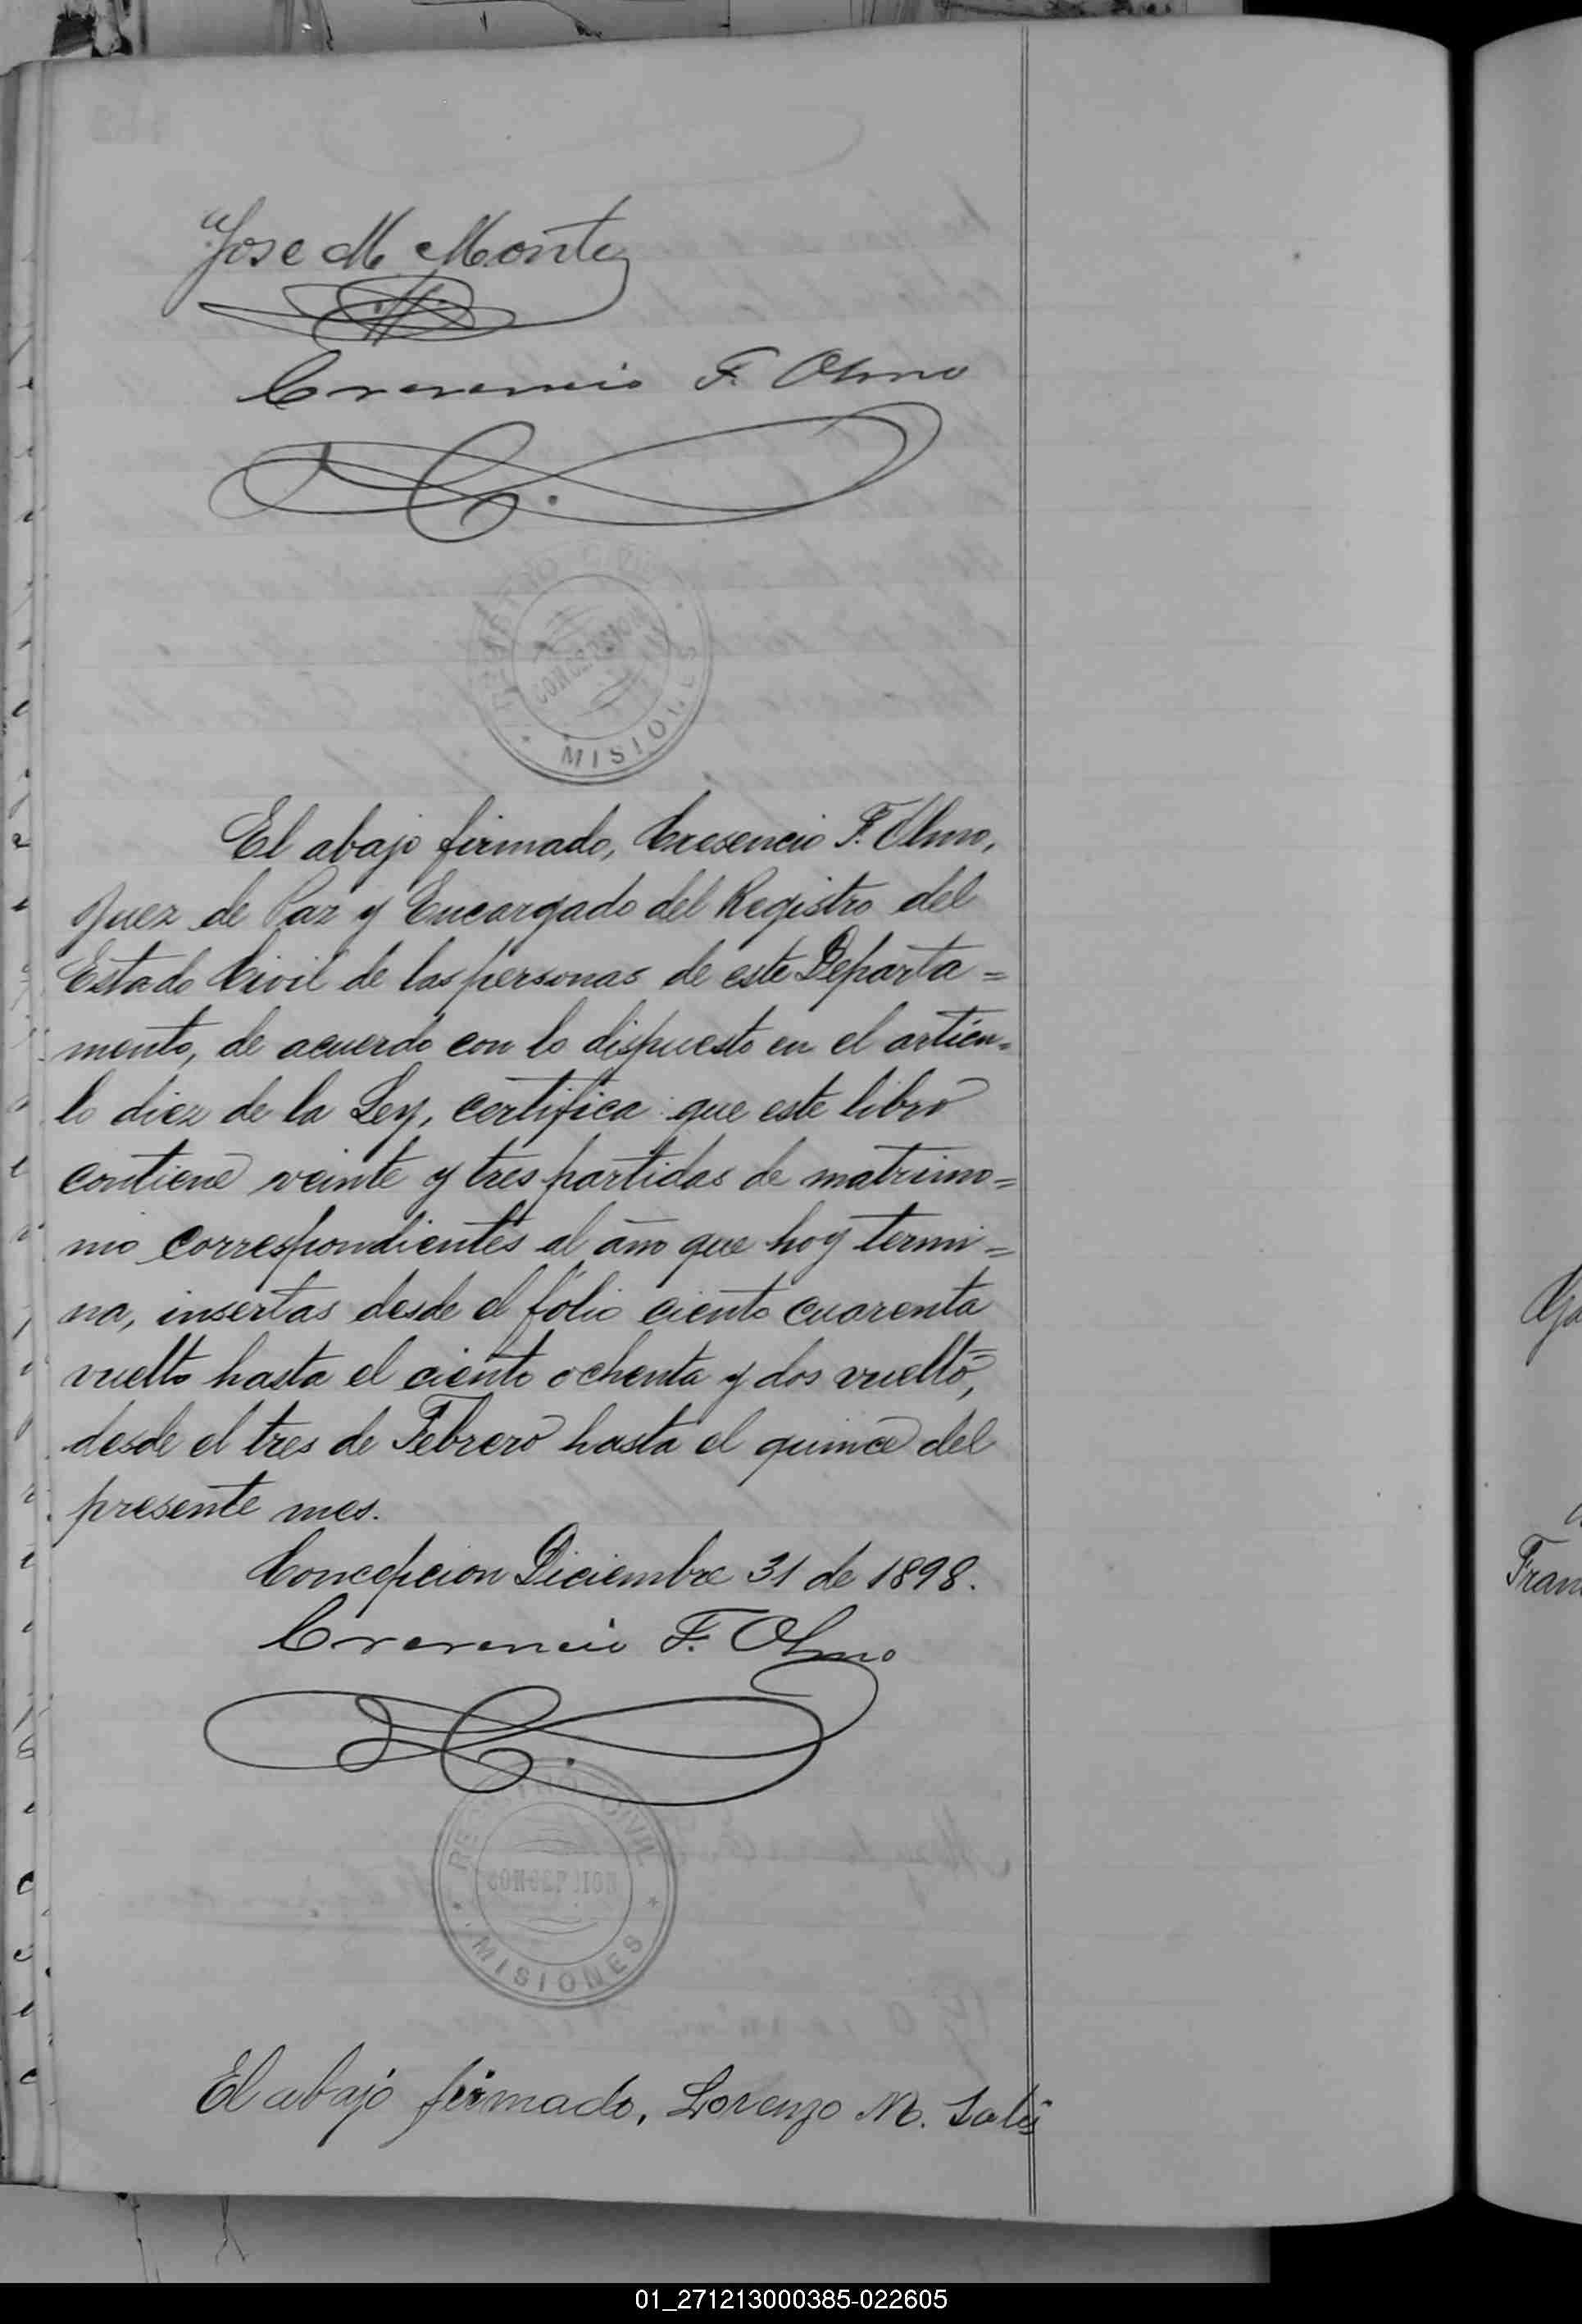 Jose M Montes
Cresencio F. Olmo
REGISTRO CIVIL
CONCEPCION
MISIONES
El abajo firmado, Cresencio F. Olmo,
Juez de Paz y Encargado del Registro del
Estado Civil de las personas de este Departa=
mento, de acuerdo con lo dispuesto en el artícu=
lo diez de la Ley, certifica: que este libro
contiene veinte y tres partidas de matrimo=
nio correspondientes al año que hoy termi=
na, insertas desde el fólio ciento cuarenta
vuelto hasta el ciento ochenta y dos vuelto,
desde el tres de Febrero hasta el quince del
presente mes.
Concepcion Diciembre 31 de 1898.
Cresencio F. Olmo
REGISTRO CIVIL
CONCEPCION
MISIONES
El abajo firmado, Lorenzo M.
Fran
01_271213000385-022605